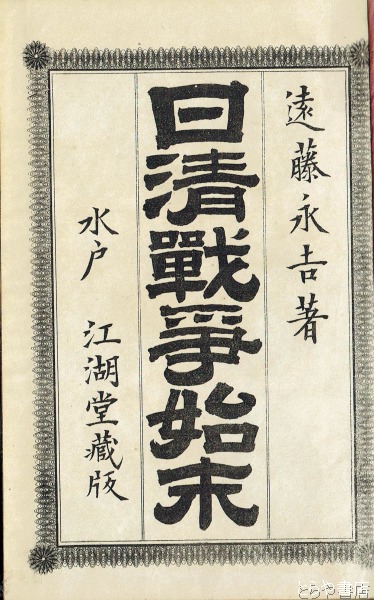 遠藤永吉著
日清戰爭始末
水戸 江湖堂藏版
とらや書店